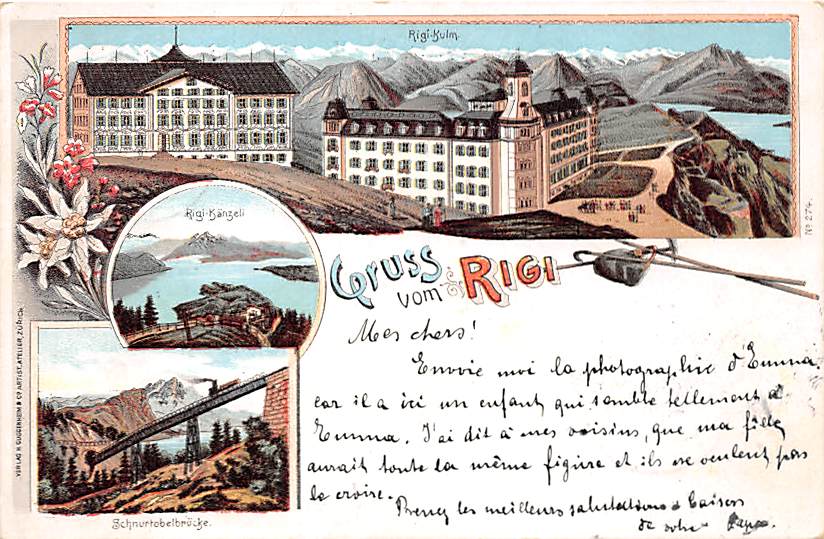 Rigi-Kulm.
Rigi-Känzeli
Gruss
vom RIGI
No 274.
VERLAG H. GUGGENHEIM & Co ARTIST. ATELIER, ZÜRICH.
Schnurtobelbrücke.
Mes chers!
Envoie moi la photographie d'Emma.
car il a ici un enfant qui semble tellement à
Emma. J'ai dit à mes voisins, que ma fille
aurait toute la même figure et ils ne veulent pas
le croire.
Prenez les meilleures salutations & baisers
de votre Papa.